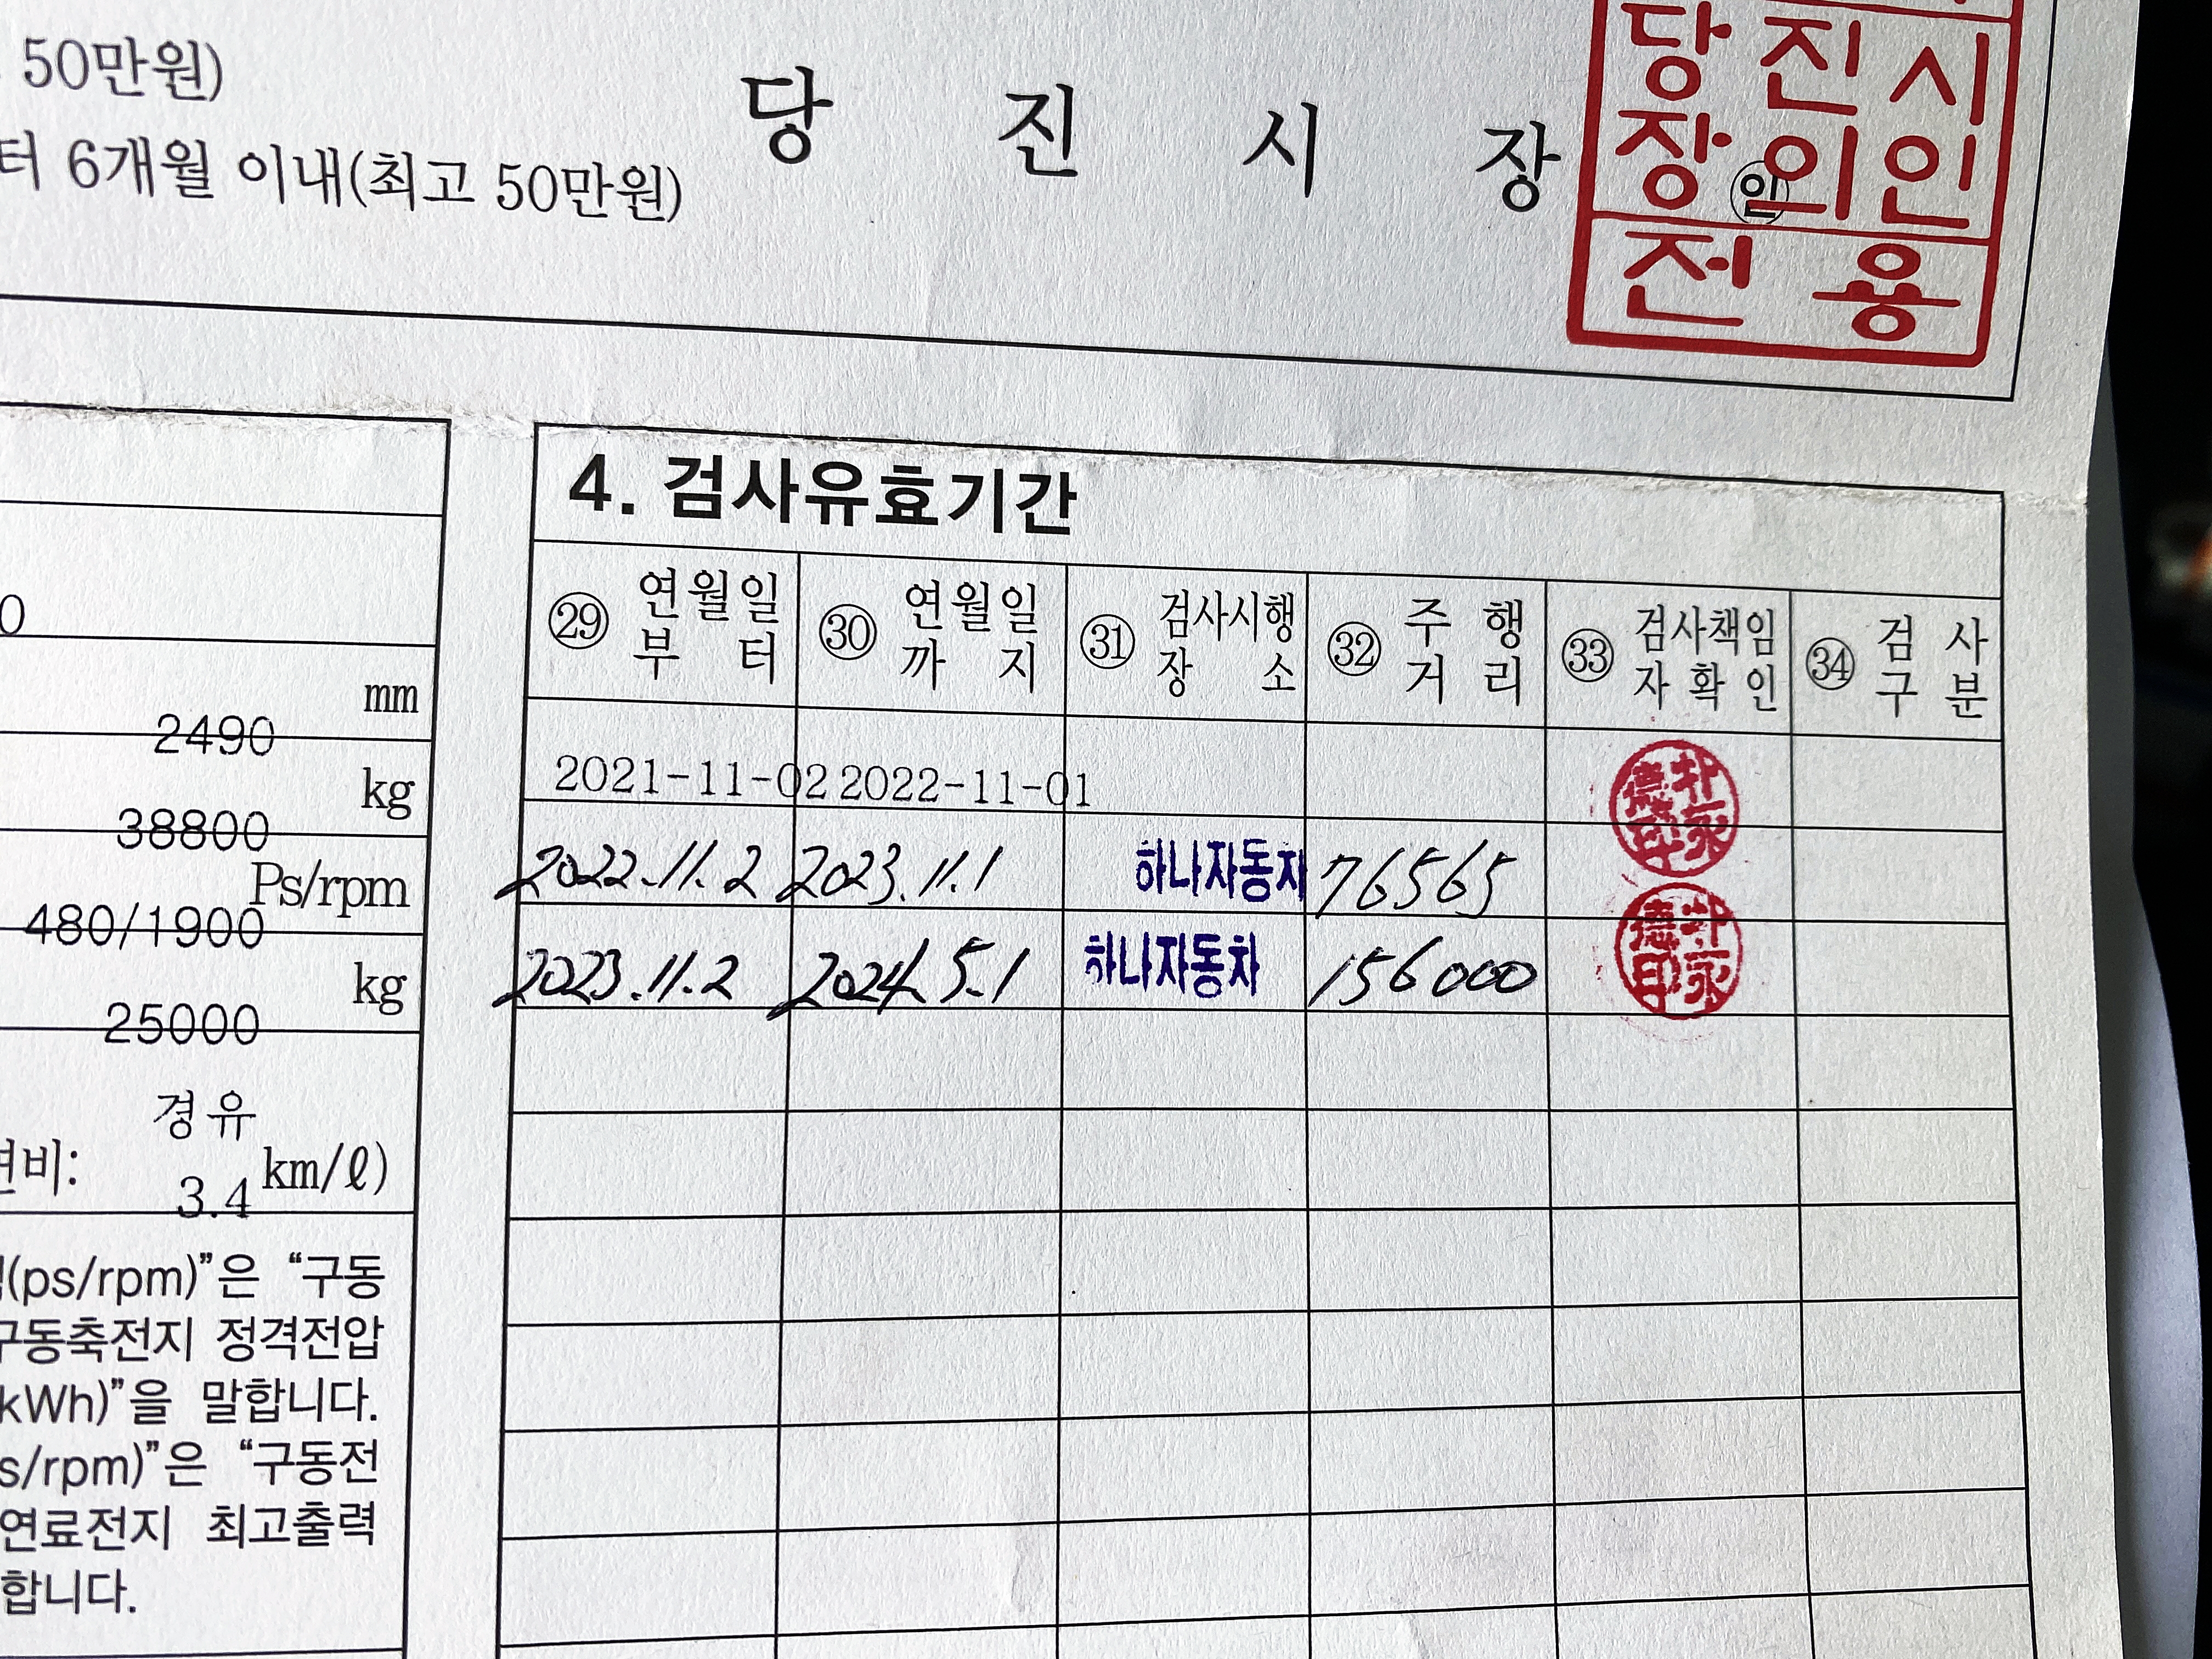 50만원)
터 6개월 이내(최고 50만원)
당 진 시 장
인
당진시
장의인
전용
0
mm
2490
kg
38800
Ps/rpm
480/1900
kg
25000
경유
연비: 3.4 km/ℓ)
(ps/rpm)”은 “구동
구동축전지 정격전압
kWh)”을 말합니다.
s/rpm)”은 “구동전
연료전지 최고출력
합니다.
4. 검사유효기간
㉙ 연월일부터 ㉚ 연월일까지 ㉛ 검사시행장소 ㉜ 주행거리 ㉝ 검사책임자확인 ㉞ 검사구분
2021-11-02 2022-11-01
2022.11.2 2023.11.1 하나자동차 76565
2023.11.2 2024.5.1 하나자동차 156000